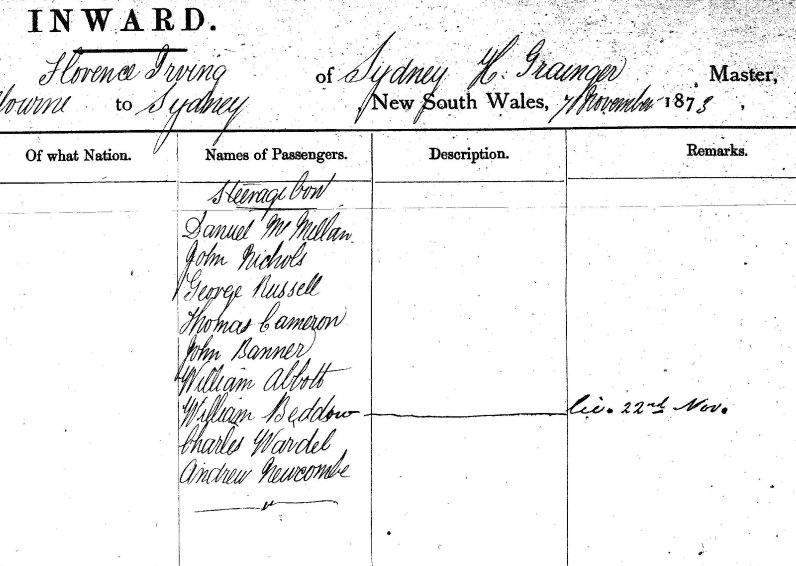 INWARD.
Florence Irving of Sydney H. Grainger, Master,
lbourne to Sydney, New South Wales, 7 November 1873,
Of what Nation. Names of Passengers. Description. Remarks.
Steerage Con
Daniel Mc Millan
John Nichols
George Russell
Thomas Cameron
John Banner
William Abbott
William Beddow 22nd Nov.
Charles Wardel
Andrew Newcombe